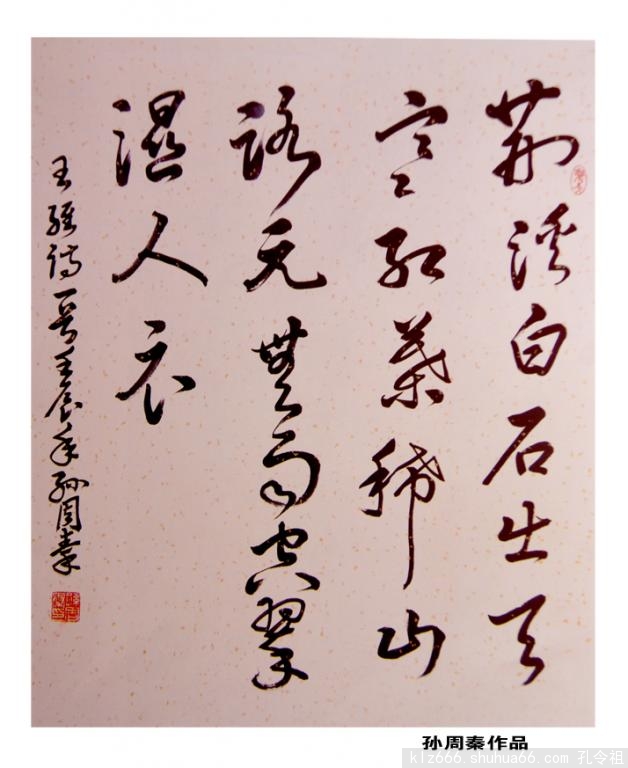 荆溪白石出天
寒红葉稀山
路元無雨空翠
湿人衣
王維诗一首壬辰年孙周秦
孙周秦作品
klz666.shuhua66.com 孔令祖